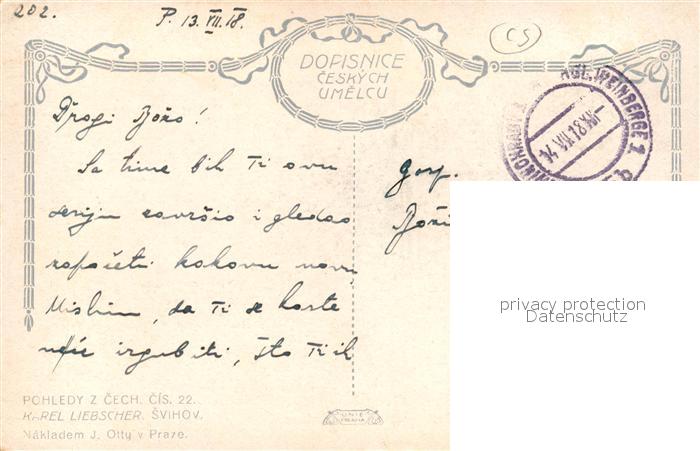 202.
P. 13. VII. 18.
CS
DOPISNICE
ČESKÝCH
UMĚLCŮ
Dragi Božo!
Sa time bih Ti ovu
seriju završio i gledao
započeti kakovu novu
Mislim, da Ti se karte
neće izgubiti, što Ti ih
Gosp.
Boži
KGL. WEINBERGE 1
privacy protection
Datenschutz
POHLEDY Z ČECH. ČÍS. 22.
KAREL LIEBSCHER. ŠVIHOV.
Nákladem J. Otty v Praze.
UNIE
PRAHA